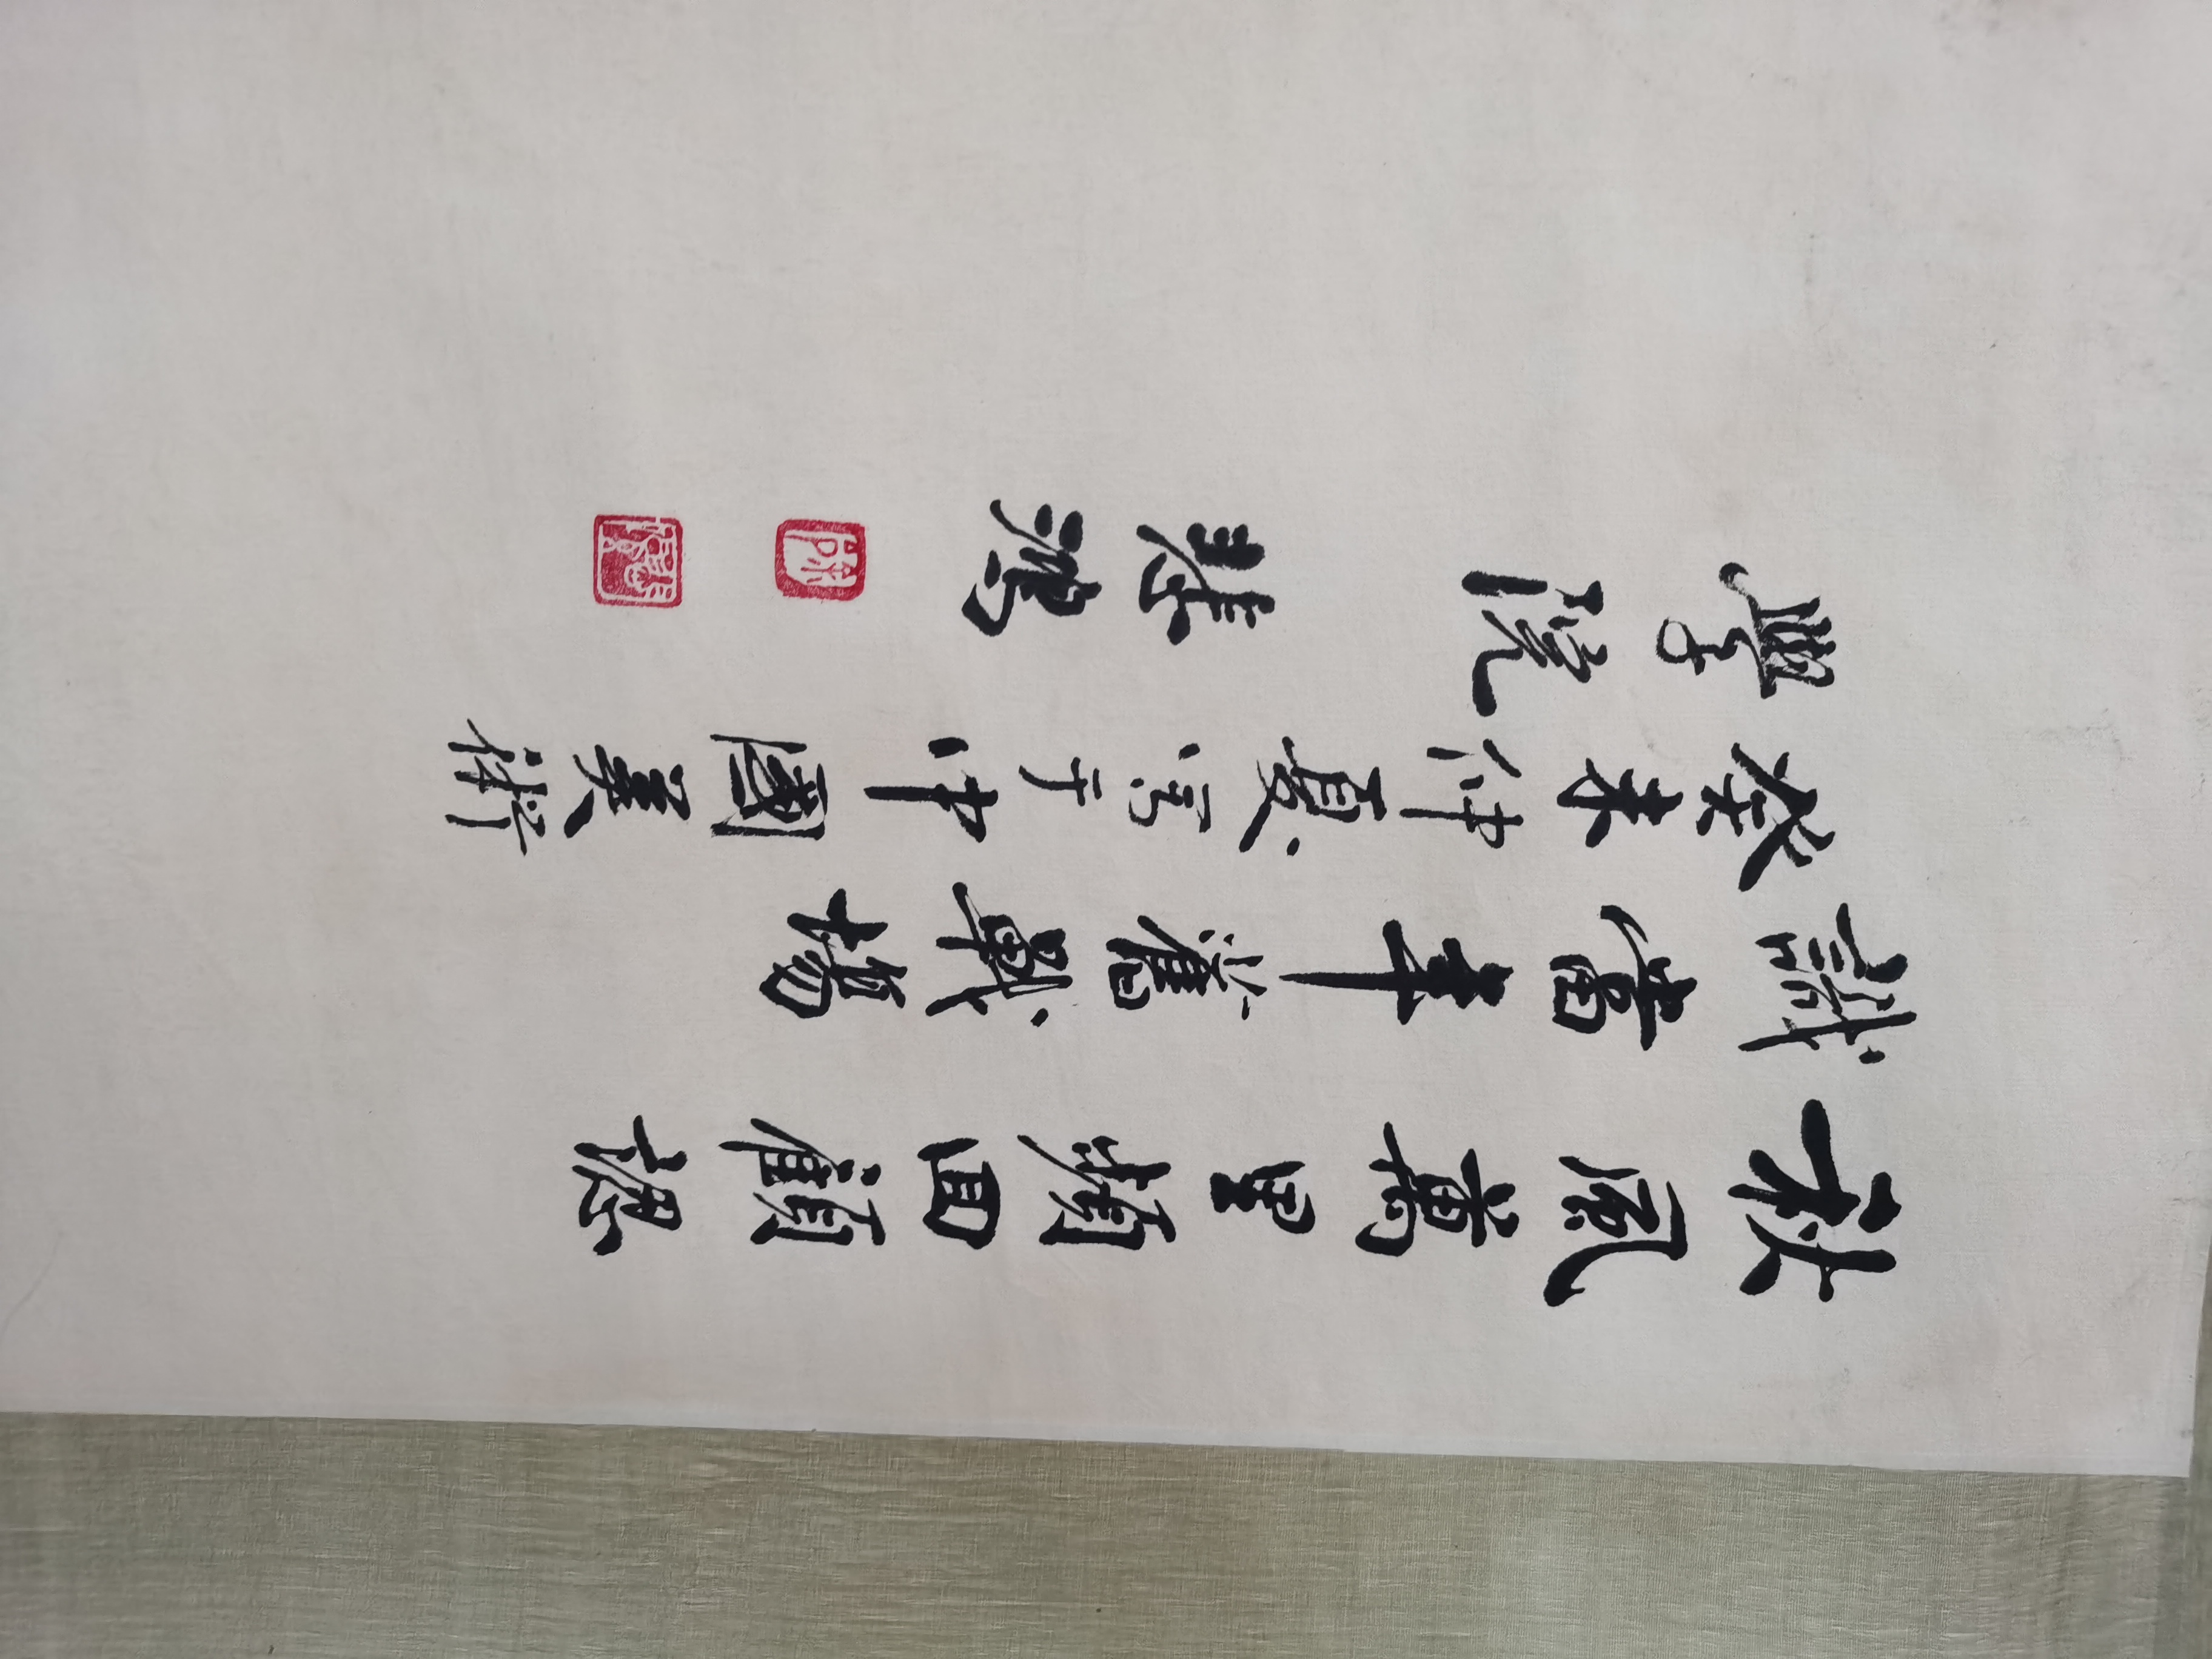 秋風萬里頻回顧認
識當年舊戰場
癸未仲夏寫于中國美術
學院
悲鴻